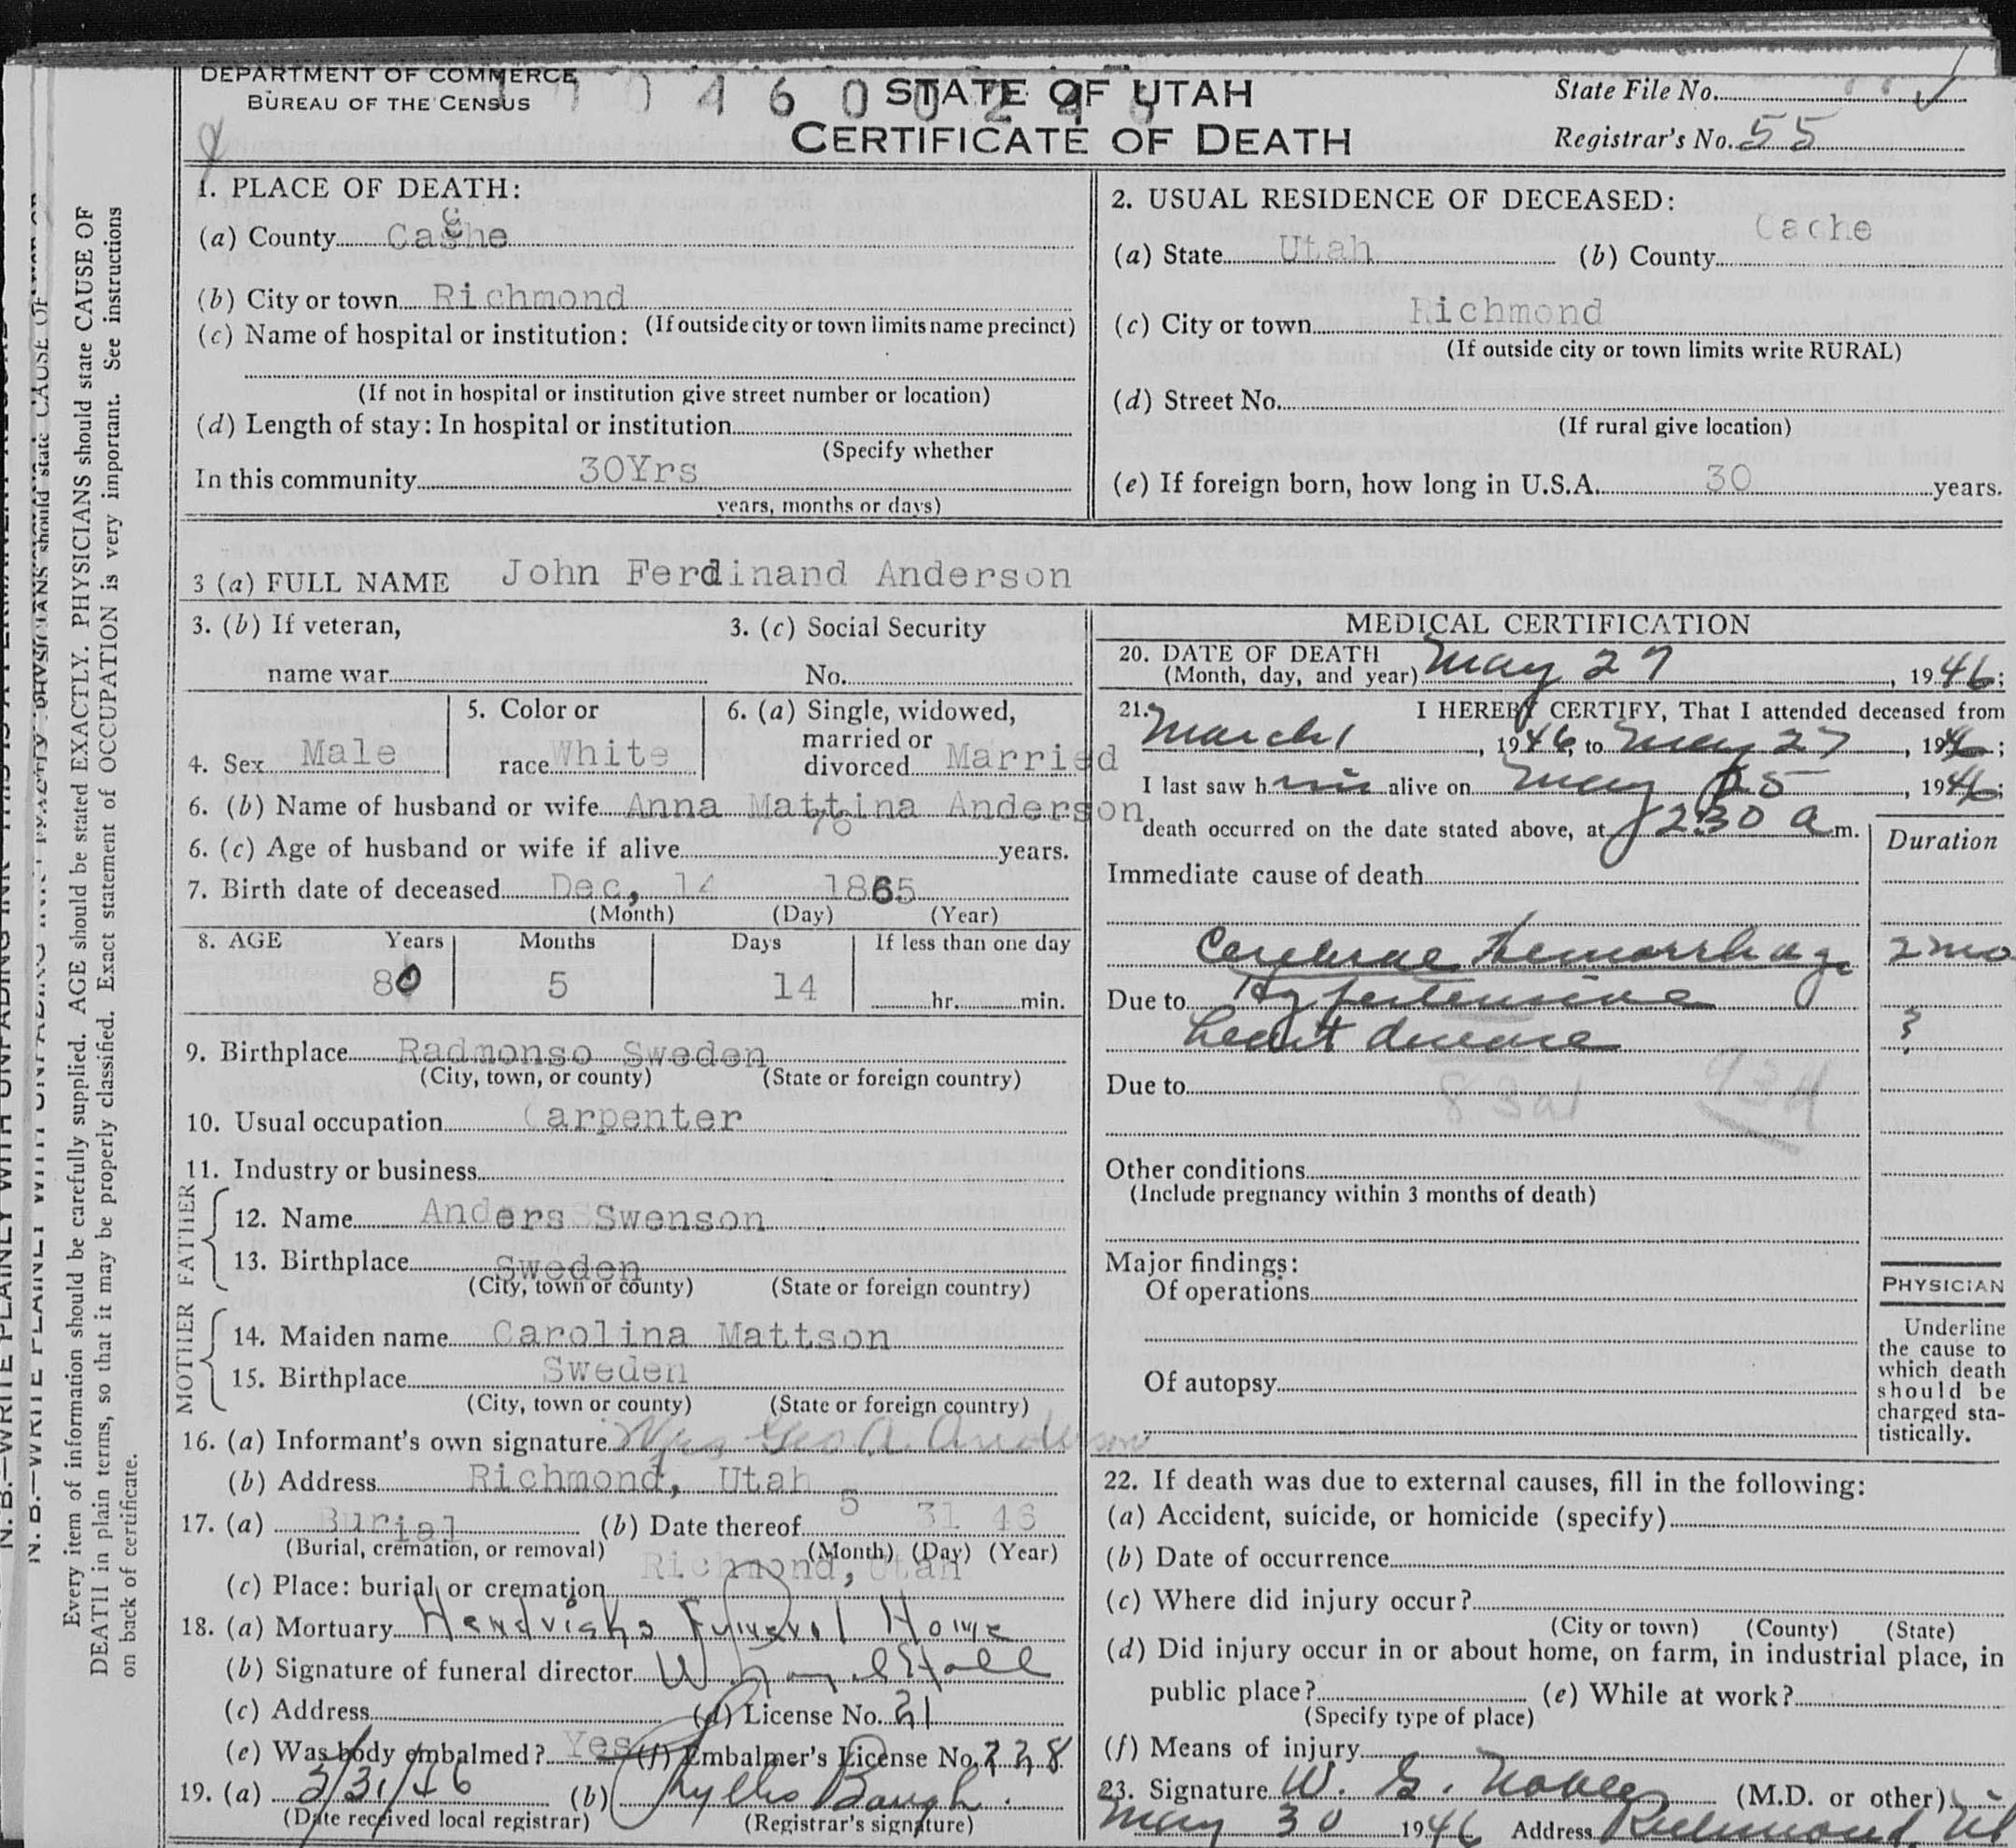 DEPARTMENT OF COMMERCE
BUREAU OF THE CENSUS
STATE OF UTAH
CERTIFICATE OF DEATH
State File No.
Registrar's No. 55
1. PLACE OF DEATH:
(a) County Cache
(b) City or town Richmond
(If outside city or town limits name precinct)
(c) Name of hospital or institution:
(If not in hospital or institution give street number or location)
(d) Length of stay: In hospital or institution
(Specify whether
In this community 30Yrs
years, months or days)
2. USUAL RESIDENCE OF DECEASED:
(a) State Utah (b) County Cache
(c) City or town Richmond
(If outside city or town limits write RURAL)
(d) Street No.
(If rural give location)
(e) If foreign born, how long in U.S.A. 30 years.
3 (a) FULL NAME John Ferdinand Anderson
3. (b) If veteran,
name war
3. (c) Social Security
No.
4. Sex Male
5. Color or
race White
6. (a) Single, widowed,
married or
divorced Married
6. (b) Name of husband or wife Anna Mattina Anderson
6. (c) Age of husband or wife if alive 76 years.
7. Birth date of deceased Dec, 14 1865
(Month) (Day) (Year)
8. AGE Years Months Days If less than one day
80 5 14 hr. min.
9. Birthplace Radmonso Sweden
(City, town, or county) (State or foreign country)
10. Usual occupation Carpenter
11. Industry or business
FATHER
12. Name Anders Swenson
13. Birthplace Sweden
(City, town or county) (State or foreign country)
MOTHER
14. Maiden name Carolina Mattson
15. Birthplace Sweden
(City, town or county) (State or foreign country)
16. (a) Informant's own signature Mrs Geo A. Anderson
(b) Address Richmond, Utah
17. (a) Burial (b) Date thereof 5 31 46
(Burial, cremation, or removal) (Month) (Day) (Year)
(c) Place: burial or cremation Richmond, Utah
18. (a) Mortuary Hendricks Funeral Home
(b) Signature of funeral director Hall
(c) Address (d) License No. 21
(e) Was body embalmed? Yes (f) Embalmer's License No. 238
19. (a) 5/31/46 (b) Phyllis Baugh.
(Date received local registrar) (Registrar's signature)
MEDICAL CERTIFICATION
20. DATE OF DEATH
(Month, day, and year) May 27, 1946;
21. I HEREBY CERTIFY, That I attended deceased from
March 1, 1946, to May 27, 1946;
I last saw him alive on May 25, 1946;
death occurred on the date stated above, at 2:30 a m.
Duration
Immediate cause of death
Cerebral Hemorrhage 2 mo
Due to Hypertensive
heart disease ?
Due to
83a1 93d
Other conditions
(Include pregnancy within 3 months of death)
Major findings:
Of operations
Of autopsy
PHYSICIAN
Underline
the cause to
which death
should be
charged sta-
tistically.
22. If death was due to external causes, fill in the following:
(a) Accident, suicide, or homicide (specify)
(b) Date of occurrence
(c) Where did injury occur?
(City or town) (County) (State)
(d) Did injury occur in or about home, on farm, in industrial place, in
public place? (e) While at work?
(Specify type of place)
(f) Means of injury
23. Signature W. G. Noble (M.D. or other)
May 30 1946 Address Richmond Ut
Every item of information should be carefully supplied. AGE should be stated EXACTLY. PHYSICIANS should state CAUSE OF
DEATH in plain terms, so that it may be properly classified. Exact statement of OCCUPATION is very important. See instructions
on back of certificate.